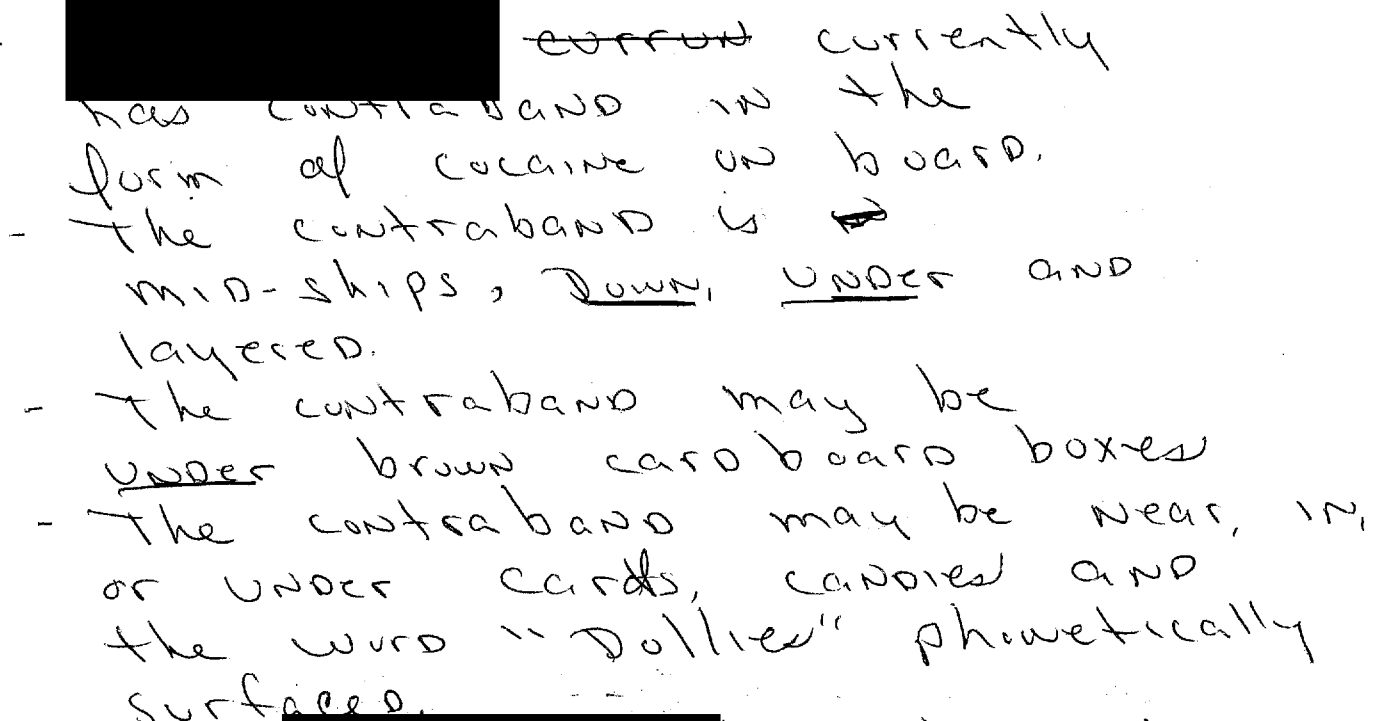 - ~~currun~~ currently
has contraband in the
form of cocaine on board.
- The contraband is
mid-ships, Down, under and
layered.
- The contraband may be
under brown cardboard boxes
- The contraband may be near, in,
or under cards, candies and
the word "Dollies" phonetically
surfaced.